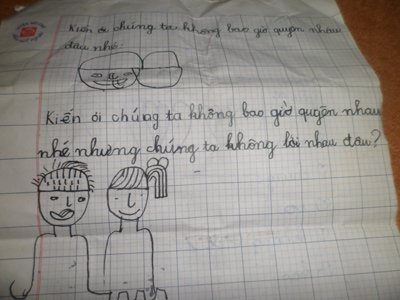 Kiến ơi chúng ta không bao giờ quyên nhau
đâu nhé.
Kiến ơi chúng ta không bao giờ quyên nhau
nhé nhưng chúng ta không lôi nhau đâu?